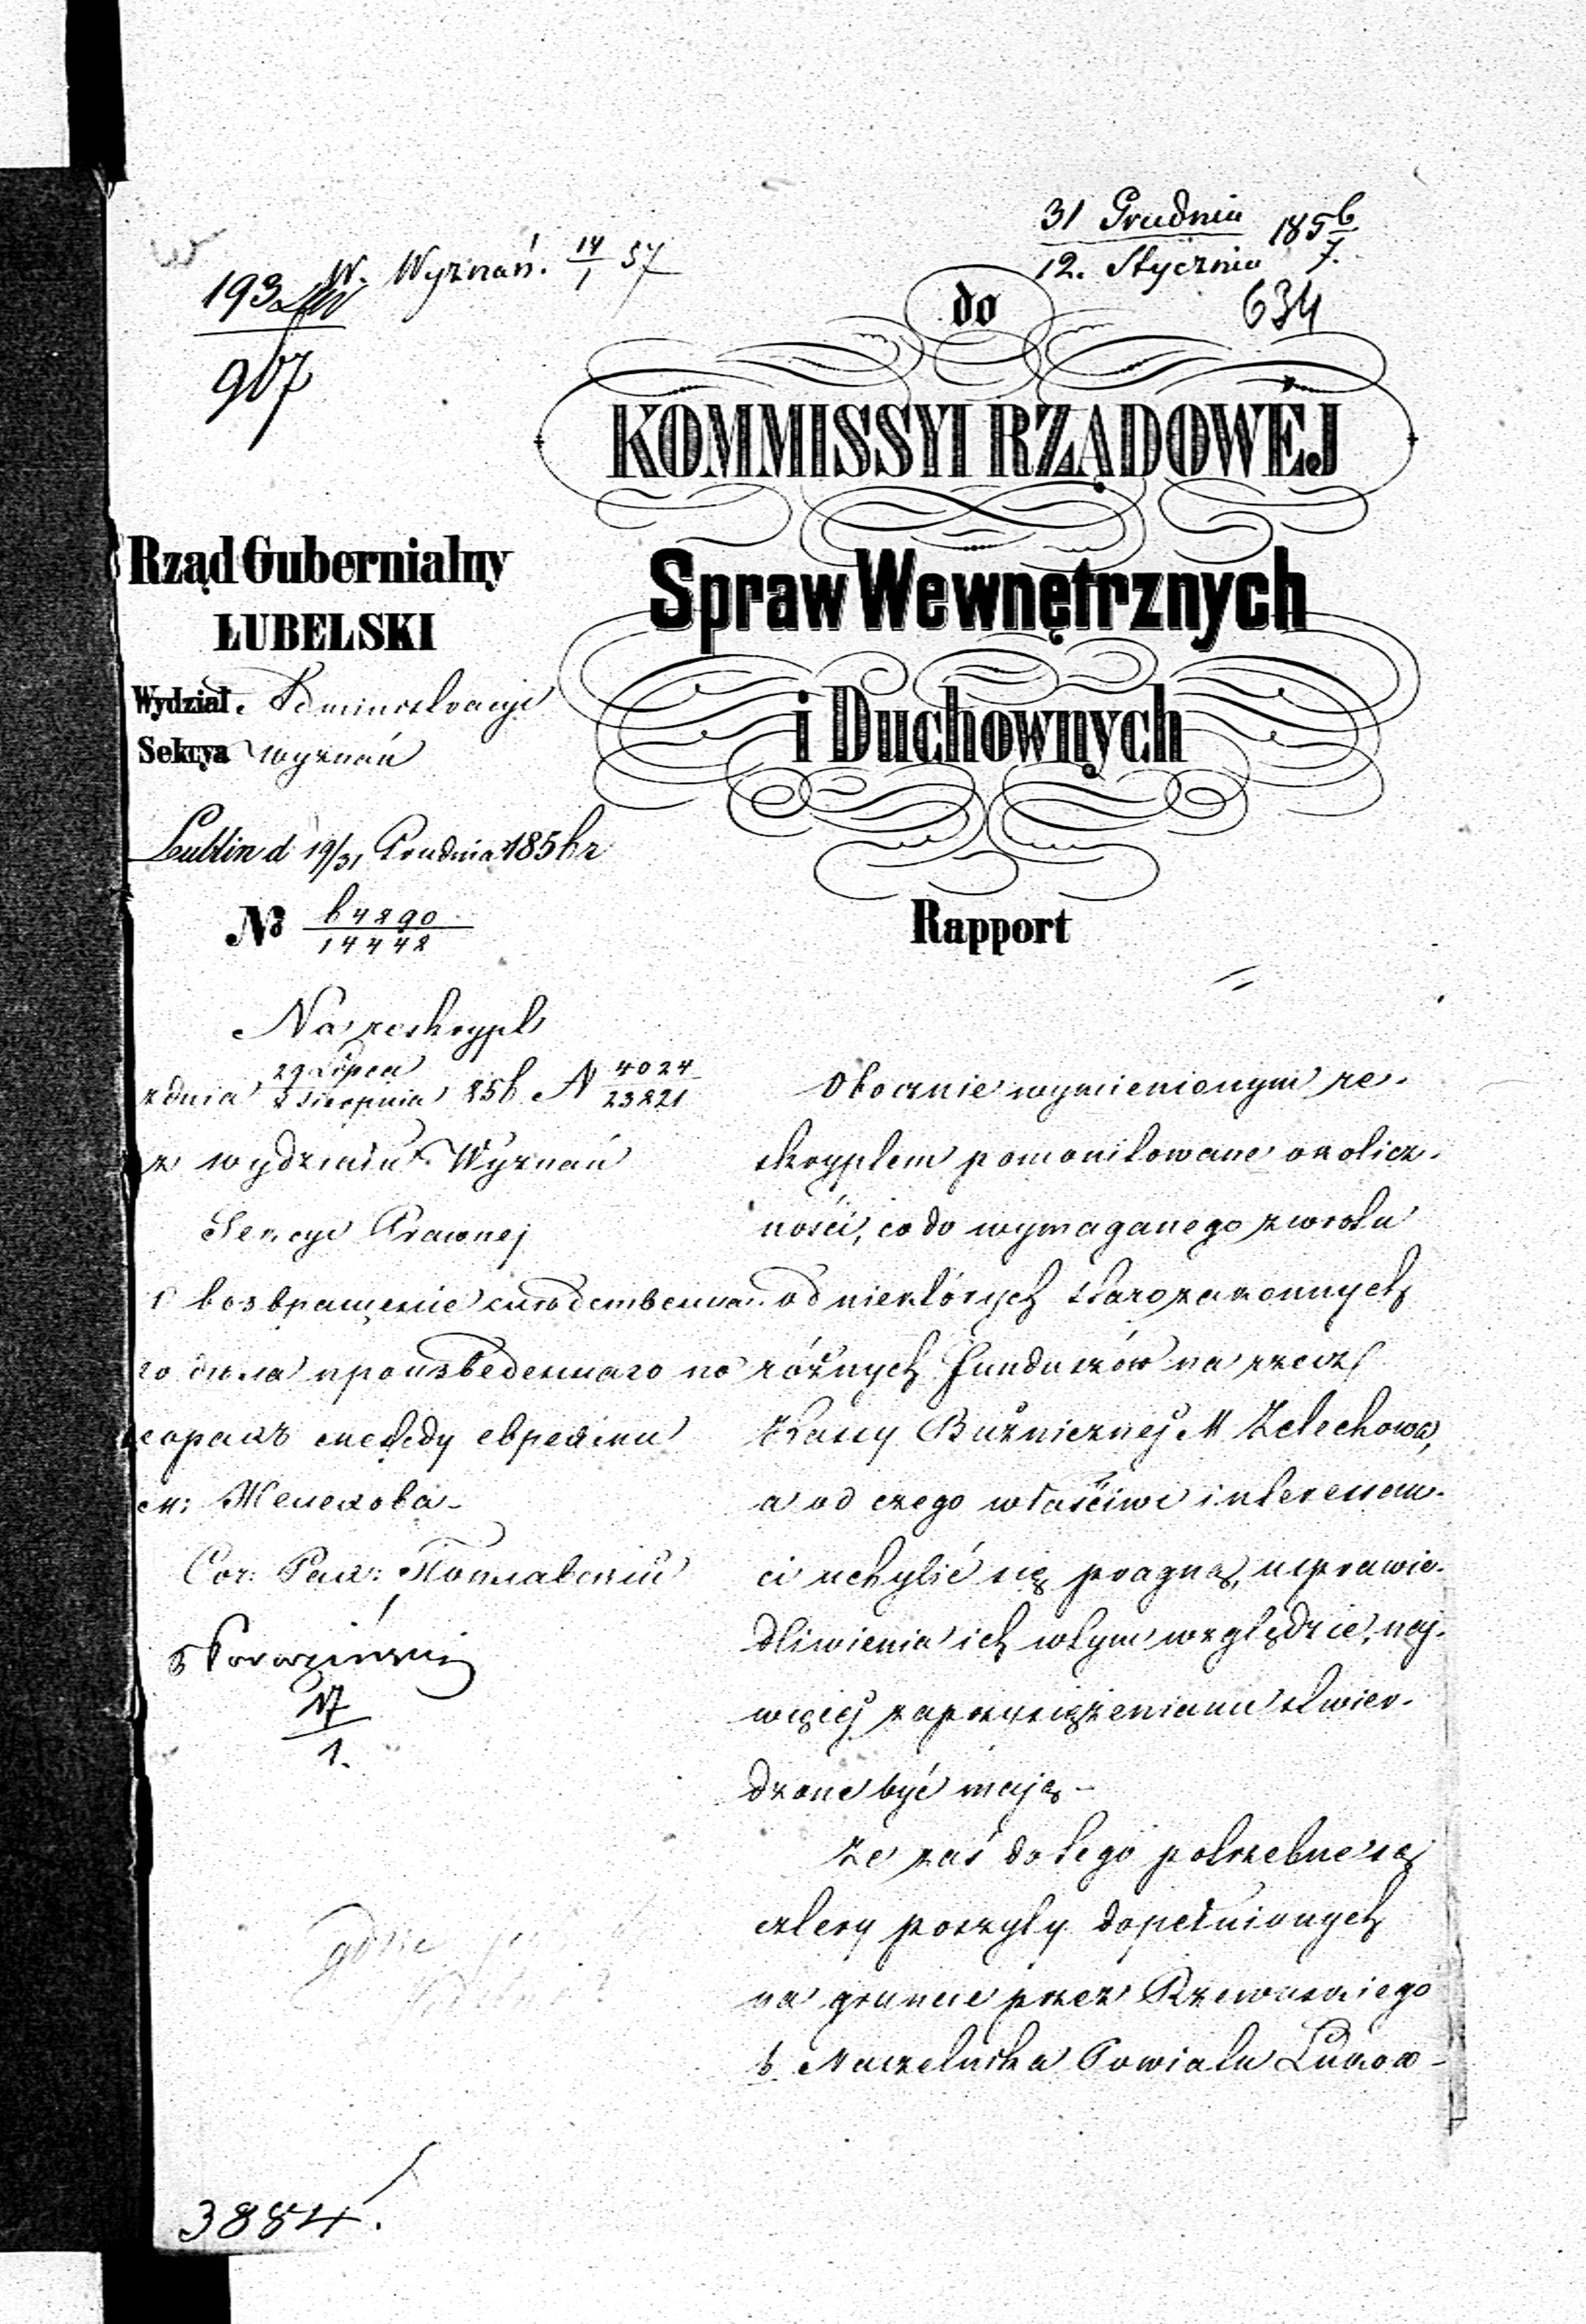 31 Grudnia 1856
12. Stycznia 7.
634
W. Wyznań. 14/1 57
193
907
do
KOMMISSYI RZĄDOWÉJ
Spraw Wewnętrznych
i Duchownych
Rząd Gubernialny
LUBELSKI
Wydział Administracyi
Sekcya Wyznań
Lublin d 19/31 Grudnia 1856 r
No 64890
14448
Rapport
Na reskrypt
z dnia 29 Lipca
Sierpnia 856 N 4024
23821
z wydziału Wyznań
Sekcyi Prawnej
возвращение следственна
го дѣла произведеннаго по
между евреями
Желехова
17
1.
Obocznie wymienionym re-
skryptem pomonitowane okolicz-
ności, co do wymaganego zwrotu
od niektórych starozakonnych
różnych funduszów na rzecz
Kassy Bużnicznej M Żelechowa,
a od czego właściwi interessan-
ci uchylić się pragną, usprawie-
dliwienia ich w tym względzie, naj-
więcej zaprzysiężeniami stwier-
dzone być mają –
Że zaś do tego potrzebne są
cztery poszyty dopełnionych
na gruncie przez Rzewuskiego
b. Naczelnika Powiatu Łukow-
gdzie
3884.